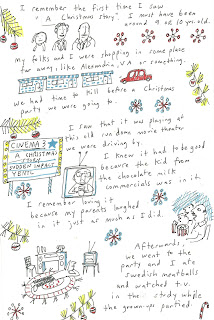 I remember the first time I saw
"A Christmas Story". I must have been
around 9 or 10 yrs. old.
my folks and I were shopping in some place
far away, like Alexandria, VA or something.
we had time to kill before a Christmas
party we were going to.
I saw that it was playing at
this old run down movie theater
we were driving by.
CINEMA 3
A CHRISTMAS
STORY
SUDDEN IMPACT
YENTL
I knew it had to be good
because the kid from
the chocolate milk
commercials was in it.
I remember loving it
because my parents laughed
in it just as much as I did.
Afterwards,
we went to the
party and I ate
Swedish meatballs
and watched t.v.
in the study while
the grown-ups partied.